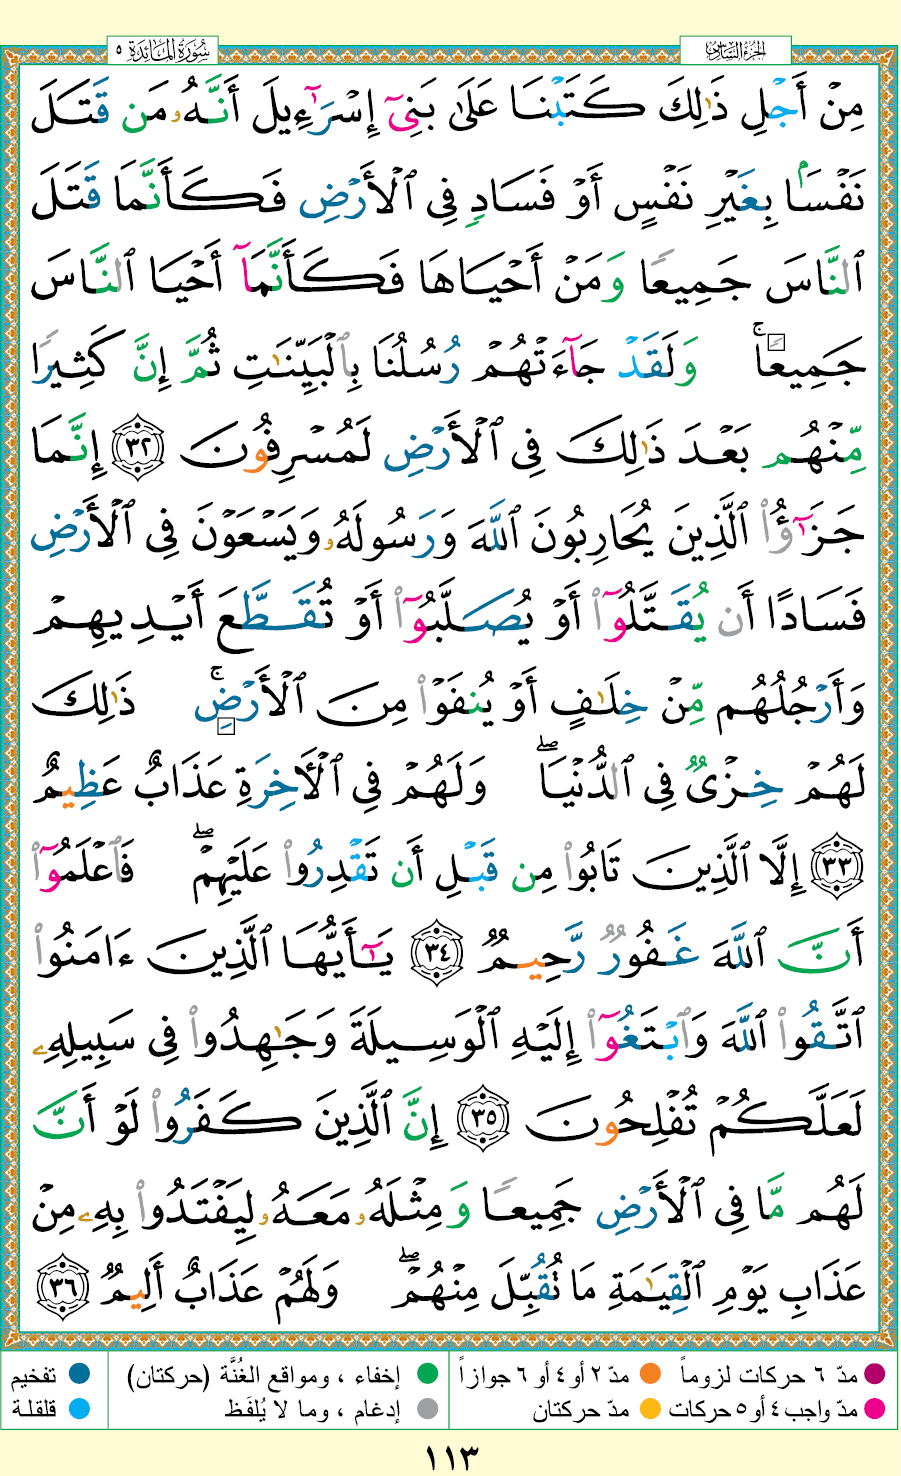 سُورَةُ المَائدَة ٥
الجزء السادس
مِنْ أَجْلِ ذَٰلِكَ كَتَبْنَا عَلَىٰ بَنِىٓ إِسْرَٰٓءِيلَ أَنَّهُۥ مَن قَتَلَ
نَفْسًۢا بِغَيْرِ نَفْسٍ أَوْ فَسَادٍ فِى ٱلْأَرْضِ فَكَأَنَّمَا قَتَلَ
ٱلنَّاسَ جَمِيعًا وَمَنْ أَحْيَاهَا فَكَأَنَّمَآ أَحْيَا ٱلنَّاسَ
جَمِيعًا ۚ وَلَقَدْ جَآءَتْهُمْ رُسُلُنَا بِٱلْبَيِّنَٰتِ ثُمَّ إِنَّ كَثِيرًا
مِّنْهُم بَعْدَ ذَٰلِكَ فِى ٱلْأَرْضِ لَمُسْرِفُونَ ٣٢ إِنَّمَا
جَزَٰٓؤُا۟ ٱلَّذِينَ يُحَارِبُونَ ٱللَّهَ وَرَسُولَهُۥ وَيَسْعَوْنَ فِى ٱلْأَرْضِ
فَسَادًا أَن يُقَتَّلُوٓا۟ أَوْ يُصَلَّبُوٓا۟ أَوْ تُقَطَّعَ أَيْدِيهِمْ
وَأَرْجُلُهُم مِّنْ خِلَٰفٍ أَوْ يُنفَوْا۟ مِنَ ٱلْأَرْضِ ۚ ذَٰلِكَ
لَهُمْ خِزْىٌ فِى ٱلدُّنْيَا ۖ وَلَهُمْ فِى ٱلْـَٔاخِرَةِ عَذَابٌ عَظِيمٌ
٣٣ إِلَّا ٱلَّذِينَ تَابُوا۟ مِن قَبْلِ أَن تَقْدِرُوا۟ عَلَيْهِمْ ۖ فَٱعْلَمُوٓا۟
أَنَّ ٱللَّهَ غَفُورٌ رَّحِيمٌ ٣٤ يَٰٓأَيُّهَا ٱلَّذِينَ ءَامَنُوا۟
ٱتَّقُوا۟ ٱللَّهَ وَٱبْتَغُوٓا۟ إِلَيْهِ ٱلْوَسِيلَةَ وَجَٰهِدُوا۟ فِى سَبِيلِهِۦ
لَعَلَّكُمْ تُفْلِحُونَ ٣٥ إِنَّ ٱلَّذِينَ كَفَرُوا۟ لَوْ أَنَّ
لَهُم مَّا فِى ٱلْأَرْضِ جَمِيعًا وَمِثْلَهُۥ مَعَهُۥ لِيَفْتَدُوا۟ بِهِۦ مِنْ
عَذَابِ يَوْمِ ٱلْقِيَٰمَةِ مَا تُقُبِّلَ مِنْهُمْ ۖ وَلَهُمْ عَذَابٌ أَلِيمٌ ٣٦
مدّ ٦ حركات لزوماً مدّ ٢ أو ٤ أو ٦ جوازاً إخفاء ، ومواقع الغُنَّة (حركتان) تفخيم
مدّ واجب ٤ أو ٥ حركات مدّ حركتان إدغام ، وما لا يُلفَظ قلقلة
١١٣